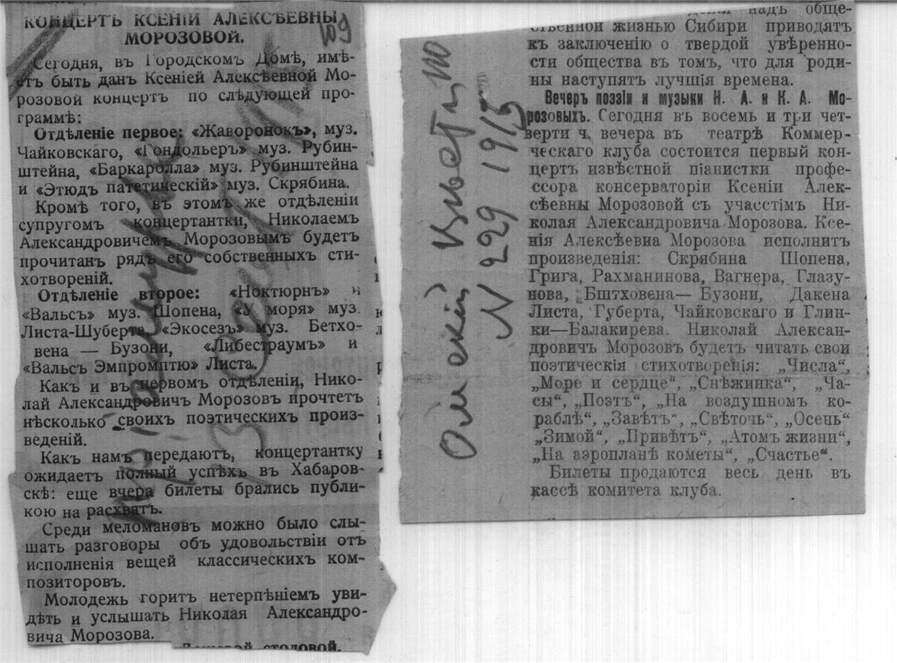 КОНЦЕРТЪ КСЕНІИ АЛЕКСѢЕВНЫ
МОРОЗОВОЙ.
109
Сегодня, въ Городскомъ Домѣ, имѣ-
етъ быть данъ Ксеніей Алексѣевной Мо-
розовой концертъ по слѣдующей про-
граммѣ:
Отдѣленіе первое: «Жаворонокъ», муз.
Чайковскаго, «Гондольеръ» муз. Рубин-
штейна, «Баркаролла» муз. Рубинштейна
и «Этюдъ патетическій» муз. Скрябина.
Кромѣ того, въ этомъ же отдѣленіи
супругомъ концертантки, Николаемъ
Александровичемъ Морозовымъ будетъ
прочитанъ рядъ его собственныхъ сти-
хотвореній.
Отдѣленіе второе: «Ноктюрнъ» и
«Вальсъ» муз. Шопена, «У моря» муз.
Листа-Шуберта, «Экосезъ» муз. Бетхо-
вена — Бузони, «Либестраумъ» и
«Вальсъ Эмпромптю» Листа.
Какъ и въ первомъ отдѣленіи, Нико-
лай Александровичъ Морозовъ прочтетъ
нѣсколько своихъ поэтическихъ произ-
веденій.
Какъ намъ передаютъ, концертантку
ожидаетъ полный успѣхъ въ Хабаров-
скѣ: еще вчера билеты брались публи-
кою на расхватъ.
Среди меломановъ можно было слы-
шать разговоры объ удовольствіи отъ
исполненія вещей классическихъ ком-
позиторовъ.
Молодежь горитъ нетерпѣніемъ уви-
дѣть и услышать Николая Александро-
вича Морозова.
столовой.
Омскій Вѣстникъ
N 229 1915
надъ обще-
ственной жизнью Сибири приводятъ
къ заключенію о твердой увѣренно-
сти общества въ томъ, что для роди-
ны наступятъ лучшія времена.
Вечеръ поэзіи и музыки Н. А. и К. А. Мо-
розовыхъ. Сегодня въ восемь и три чет-
верти ч. вечера въ театрѣ Коммер-
ческаго клуба состоится первый кон-
цертъ извѣстной піанистки профе-
ссора консерваторіи Ксеніи Алек-
сѣевны Морозовой съ участімъ Ни-
колая Александровича Морозова. Ксе-
нія Алексѣевна Морозова исполнитъ
произведенія: Скрябина Шопена,
Грига, Рахманинова, Вагнера, Глазу-
нова, Бштховена— Бузони, Дакена
Листа, Губерта, Чайковскаго и Глин-
ки—Балакирева. Николай Алексан-
дровичъ Морозовъ будетъ читать свои
поэтическія стихотворенія: „Числа",
„Море и сердце", „Снѣжинка", „Ча-
сы", „Поэтъ", „На воздушномъ ко-
раблѣ", „Завѣтъ", „Свѣточь", „Осень"
„Зимой", „Привѣтъ", „Атомъ жизни",
„На аэропланѣ кометы", „Счастье".
Билеты продаются весь день въ
кассѣ комитета клуба.